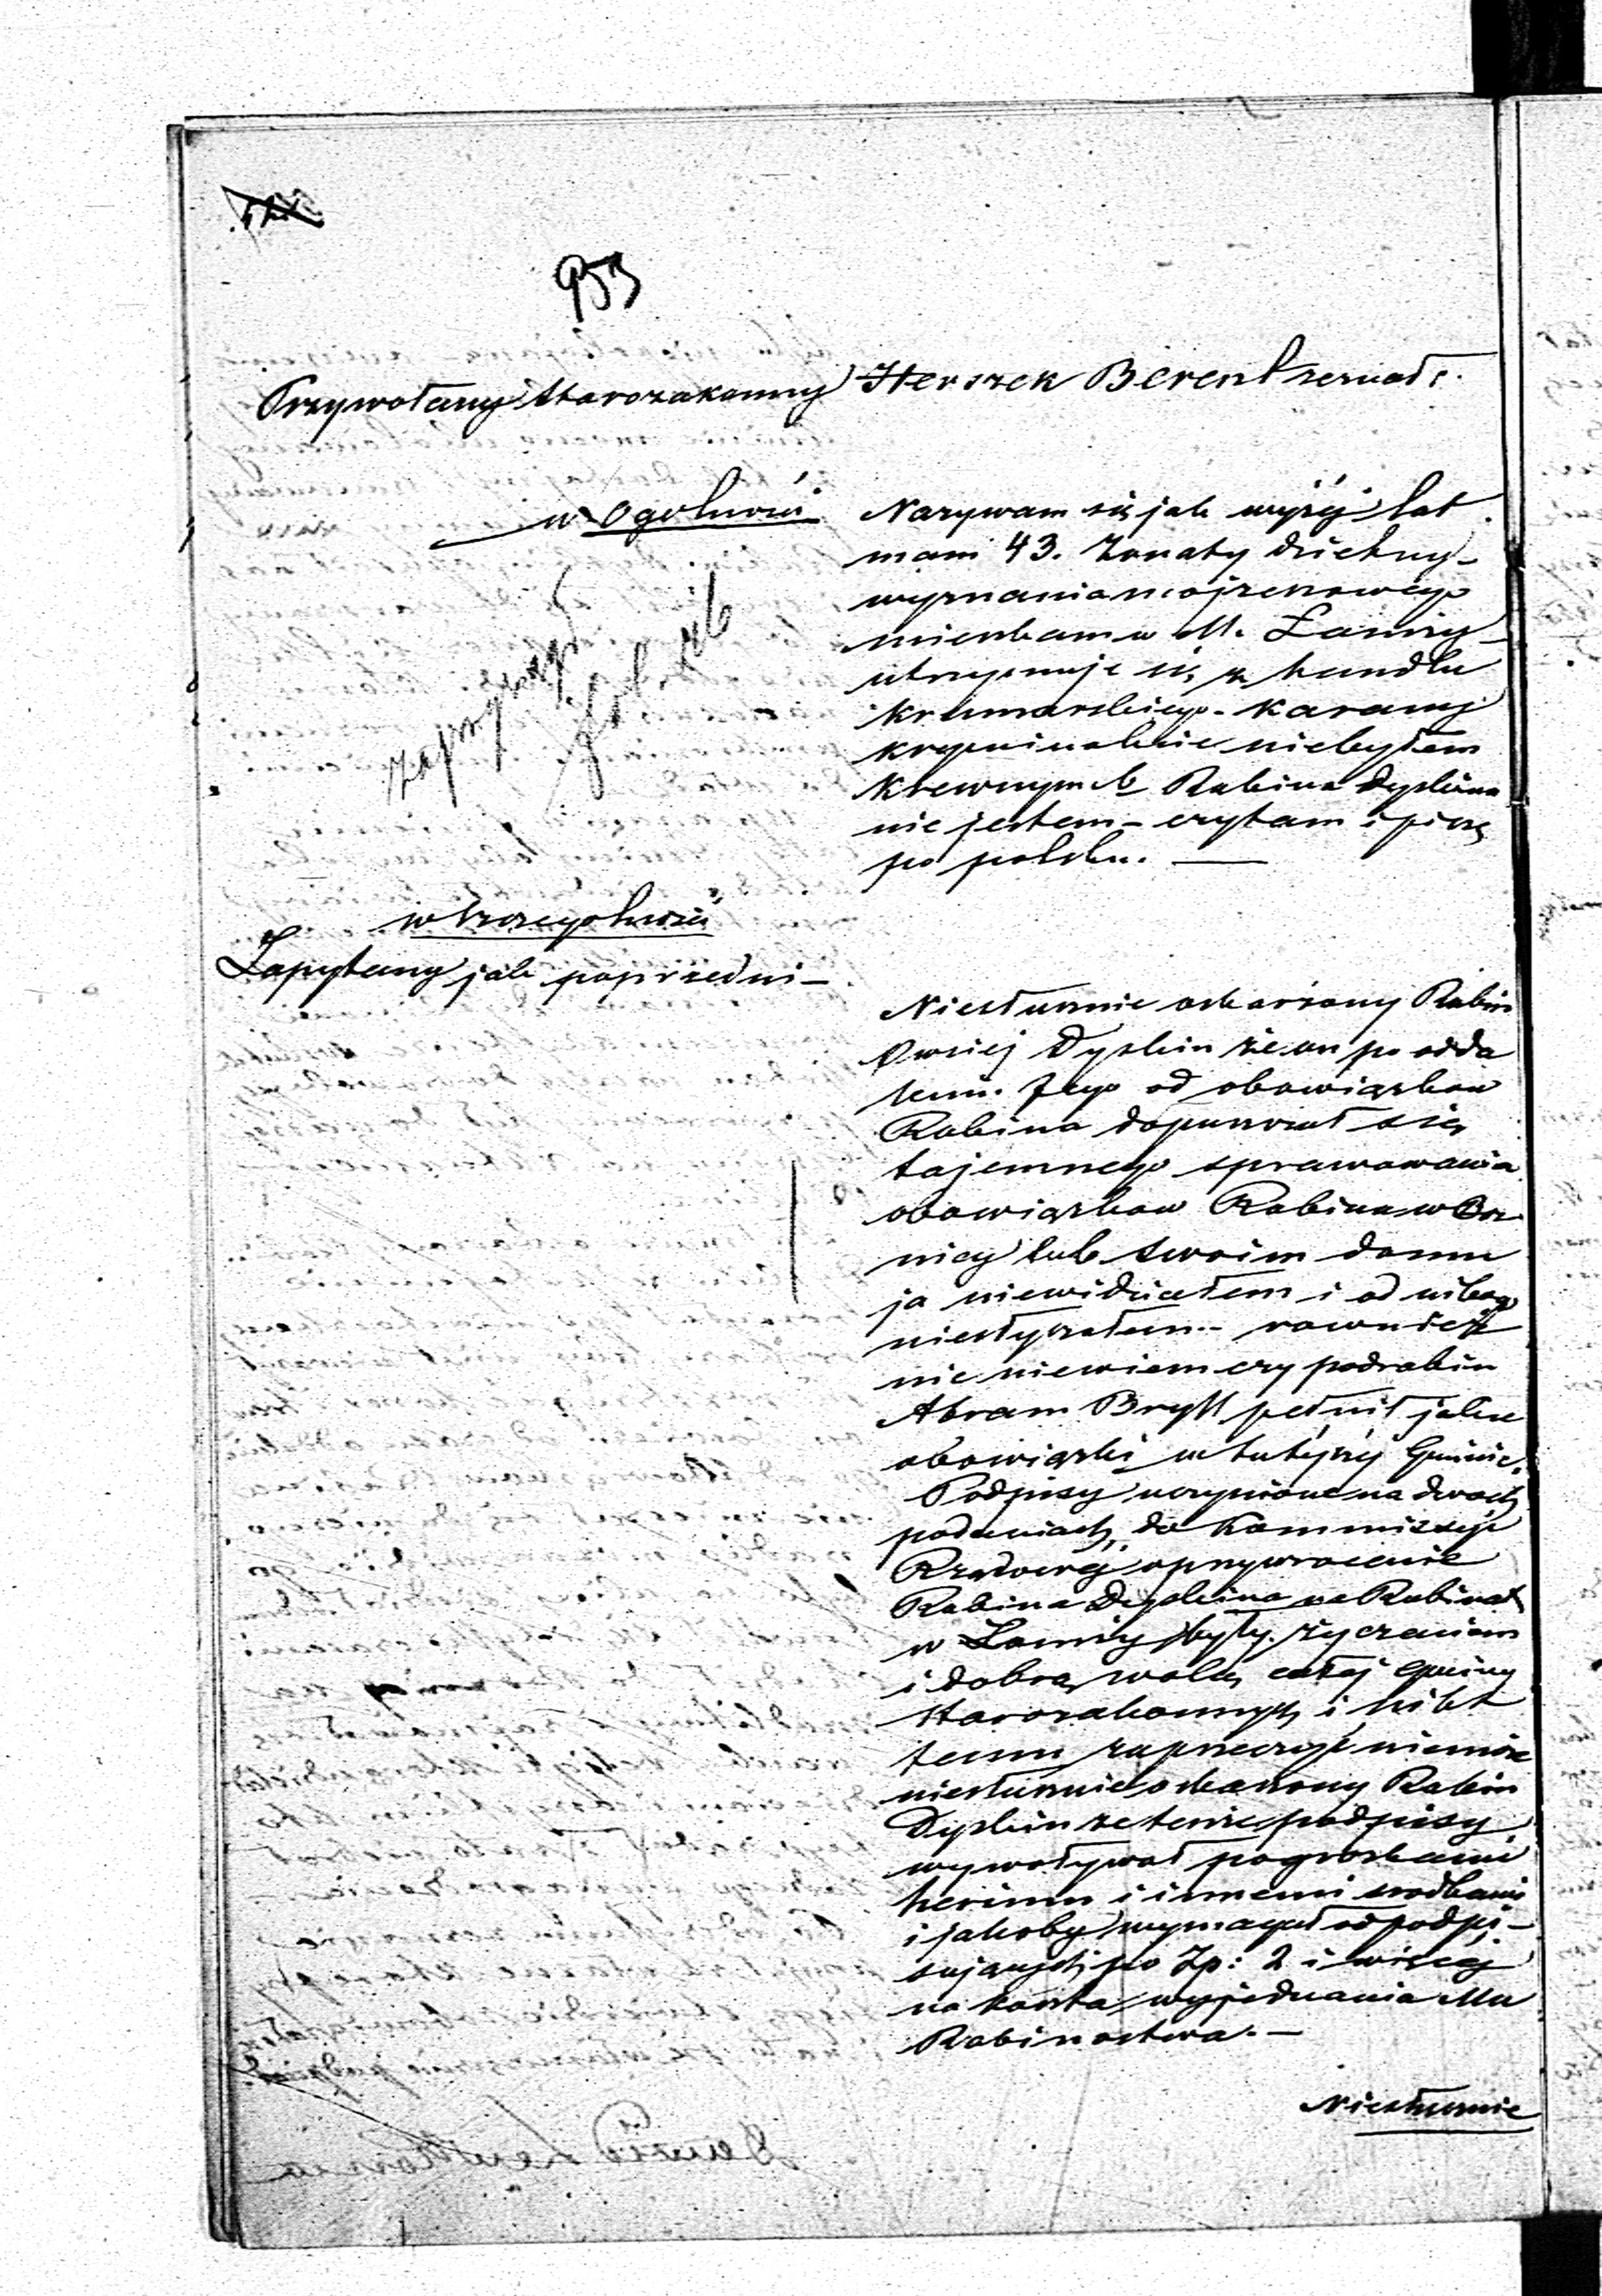 953
Przywołany Starozakonny Herszek Berent zeznał:
w Ogolności
Nazywam się jak wyżej lat
mam 43. Żonaty dzietny –
wyznania mojżeszowego
mieszkam w M. Łomży –
utrzymuje się z handlu
kramarskiego – karany
kryminalnie niebyłem
Krewnym b Rabina Dyskina
nie jestem – czytam i piszę
po polsku. —
w Szczegolności
Zapytany jak poprzedni –
Niesłusznie oskarżony Rabin
Owsiej Dyskin że on po odda
leniu Jego od obowiązkow
Rabina dopuszczał się
tajemnego sprawowania
obowiązkow Rabina w Boz
nicy lub swoim domu
ja niewidziałem i od nikogo
niesłyszałem – rownież
nie niewiem czy podrabin
Abram Bryll pełnił jakie
obowiązki w tutejszej Gminie.
Podpisy uczynione na dwoch
podaniach, do Kommissyji
Rządowej o przywrocenie
Rabina Dyskina na Rabinat
w Łomży były życzeniem
i dobrą wolą całej Gminy
Starozakonnych i nikt
temu zaprzeczyć niemoże
niesłusznie oskarżony Rabin
Dyskin że tenże podpisy
wywoływał pogroskami
herimu i innemi srodkami
i jakoby wymagał od podpi –
sujących po Zp: 2 i więcej
na koszta wyjednania Mu
Rabinostwa. –
Niesłusznie